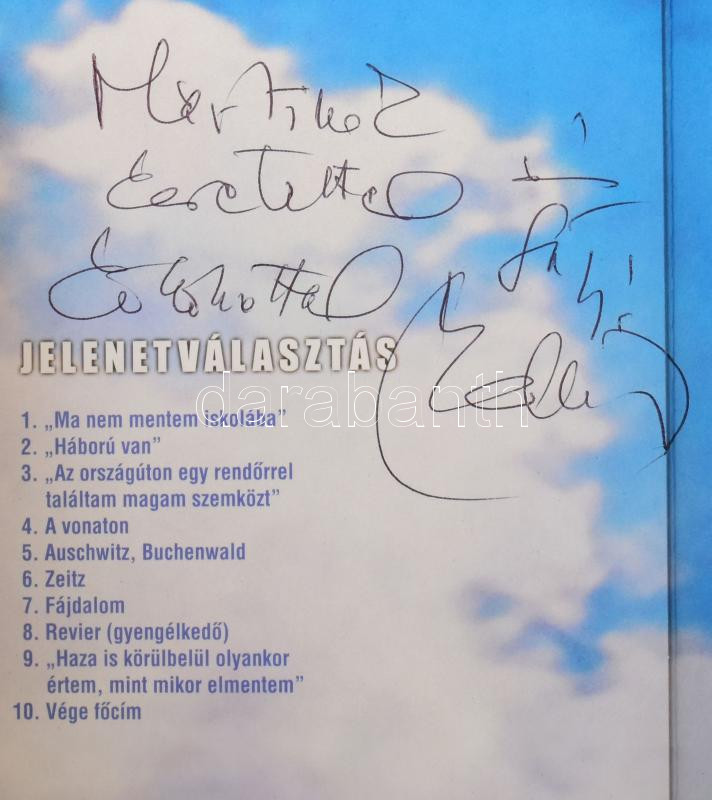 Mártinak
Szeretettel
JELENETVÁLASZTÁS
darabanth
1. „Ma nem mentem iskolába”
2. „Háború van”
3. „Az országúton egy rendőrrel
találtam magam szemközt”
4. A vonaton
5. Auschwitz, Buchenwald
6. Zeitz
7. Fájdalom
8. Revier (gyengélkedő)
9. „Haza is körülbelül olyankor
értem, mint mikor elmentem”
10. Vége főcím